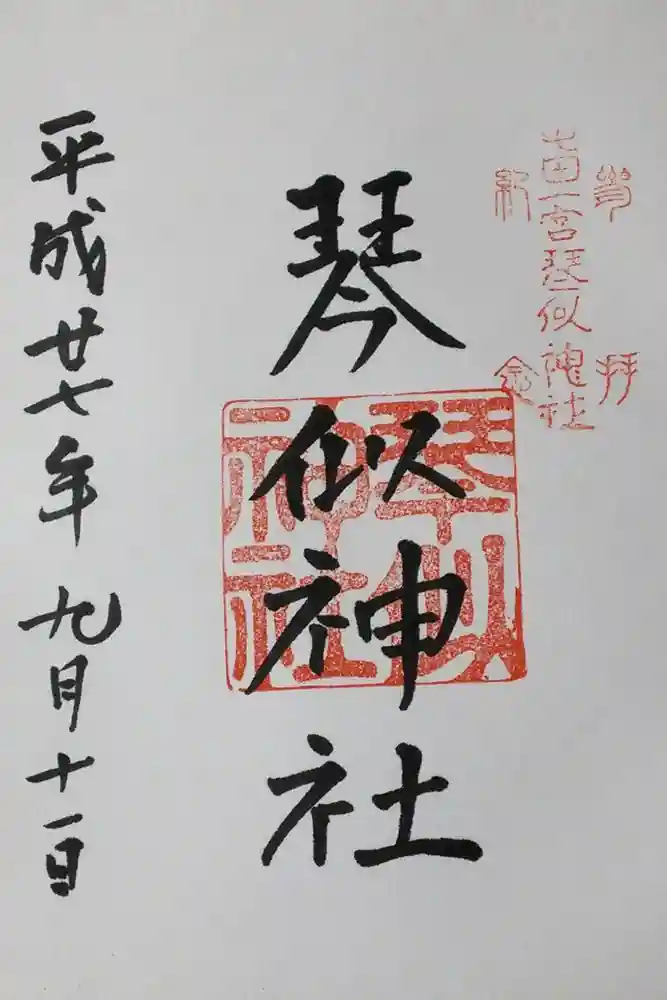 參拝
宮琴似神社
紀念
琴似神社
琴似
神社
平成廿七年九月十一日